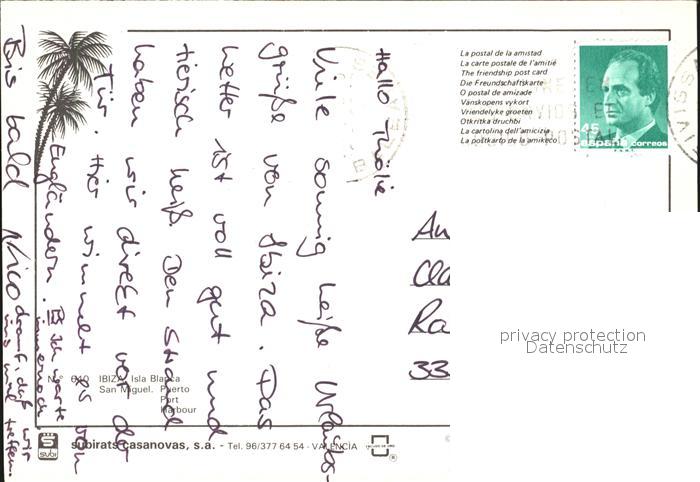 Hallo
Viele sonnig heiße Urlaubs-
grüße von Ibiza. Das
Wetter ist voll gut und
tierisch heiß. Den Strand
haben wir direkt vor der
Tür. Hier wimmelt es von
Engländern. Ich warte
immernoch
drauf, daß wir
uns mal treffen.
Bis bald Nico
La postal de la amistad
La carte postale de l'amitié
The friendship post card
Die Freundschaftskarte
O postal de amizade
Vänskapens vykort
Vriendelyke groeten
Otkritka druchbi
La cartolina dell'amicizia
La postkarto de la amikeco
45
españa correos
An
Cla
Ra
33
privacy protection
Datenschutz
N.° 640 IBIZA, Isla Blanca
San Miguel. Puerto
Port
Harbour
subi
subirats casanovas, s.a. - Tel. 96/377 64 54 - VALENCIA